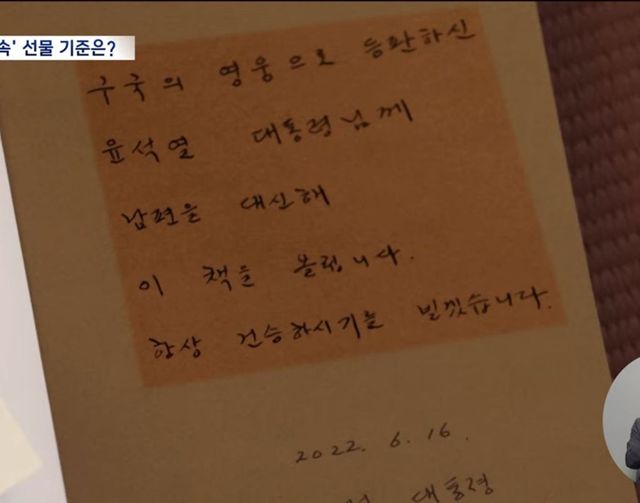 속' 선물 기준은?
구국의 영웅으로 등판하신
윤석열 대통령님께
남편을 대신해
이 책을 올립니다.
항상 건승하시기를 빌겠습니다.
2022. 6. 16.
대통령